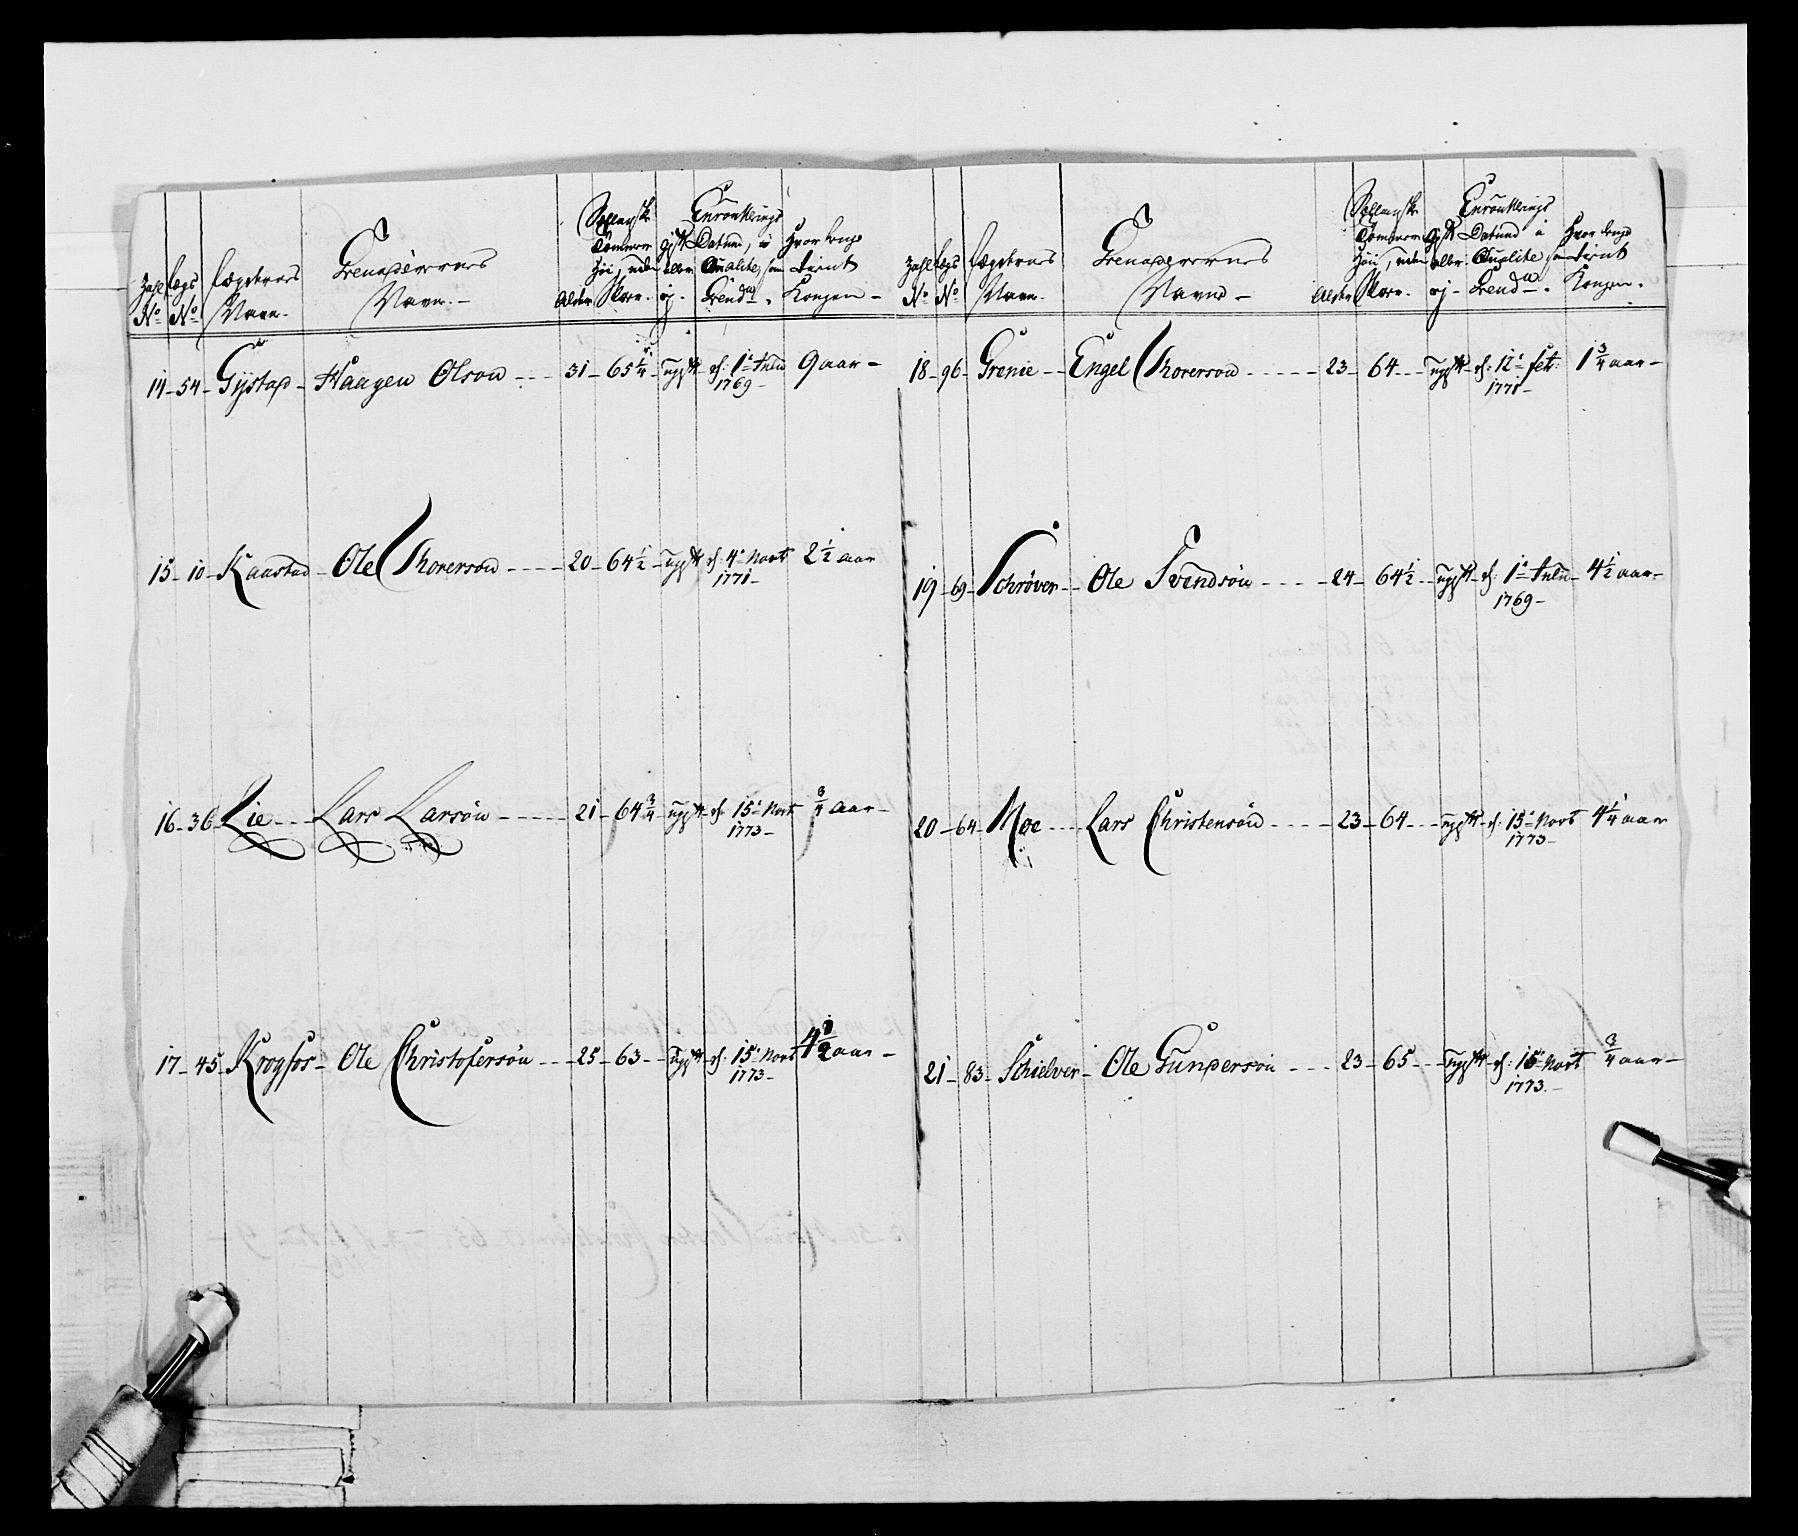 Zahl No
Lægs No
Lægdernes Navn.
Grenaderernes Navn.
Alder
Sællansk Tommer Høi, uden Skoe.
gift eller ej.
Enroullerings Datum, i Qualite som Grendr.
Hvor længe tient Kongen
14 - 54 - Gystad - Haagen Olson - 31 - 65 1/4 - ugift - d: 1te Juln 1769 - 9 aar -
15 - 10 - Kaastad - Ole Thorerson - 20 - 64 1/2 - ugift d: 4te Mart 1771 - 2 1/2 aar
16 - 36 - Lie - Lars Larsøn - 21 - 64 3/4 - ugift - d: 15te Mart 1773 - 3/4 aar -
17 - 45 - Krogfos - Ole Christofersøn - 25 - 63 - ugift - d: 15te Mart 1773 - 4 1/2 aar -
Zahl No
Lægs No
Lægdernes Navn.
Grenaderernes Navn -
Alder
Sællansk Tommer Høi, uden Skoe.
gift eller ej -
Enroullerings Datum i Qualite som Grendr.
Hvor længe tient Kongen.
18 - 96 - Grenie - Engel Thorerson - 23 - 64 - ugift - d: 12te 1771 - 1 3/4 aar -
19 - 69 - Schrøver - Ole Svendsøn - 24 - 64 1/2 - ugift - d: 1te Juln 1769 - 4 1/2 aar -
20 - 64 - Moe - Lars Christensøn - 23 - 64 - ugift - d: 15te Mart 1773 - 4 1/4 aar
21 - 83 - Schielver - Ole Gundersøn - 23 - 65 - ugift - d: 15te Mart 1773 - 3/4 aar -